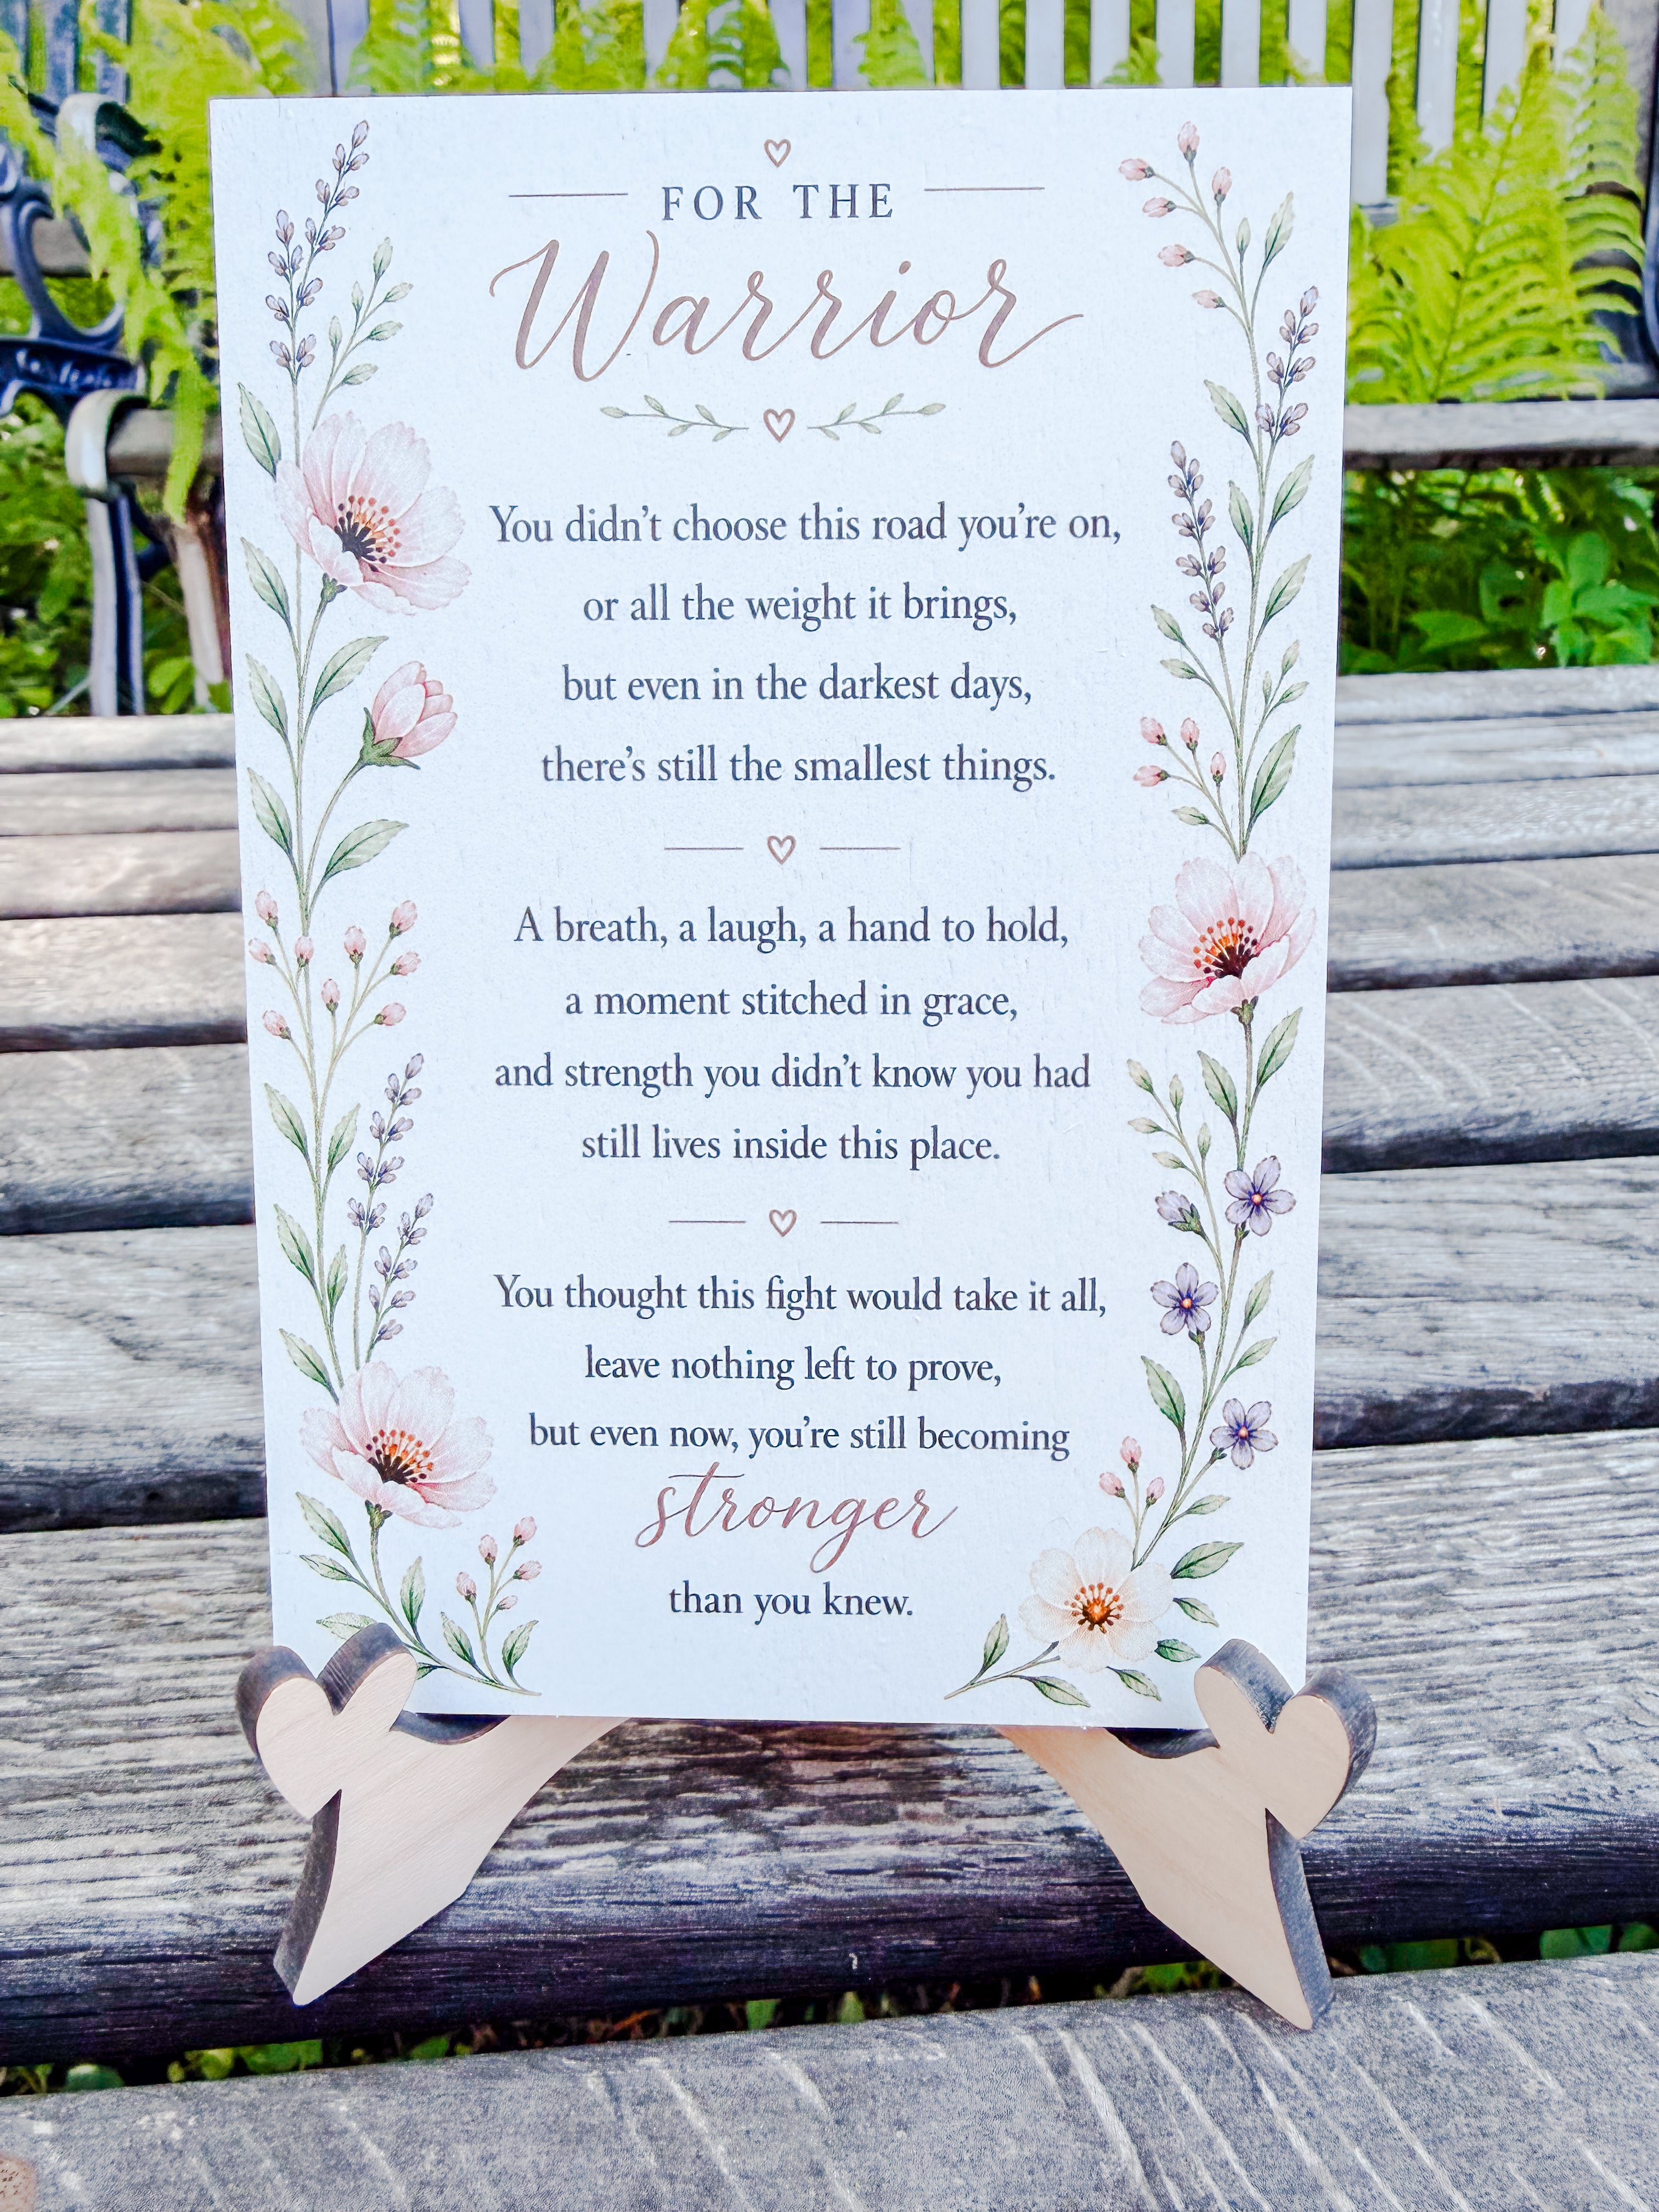 FOR THE
Warrior
You didn't choose this road you're on,
or all the weight it brings,
but even in the darkest days,
there's still the smallest things.
A breath, a laugh, a hand to hold,
a moment stitched in grace,
and strength you didn't know you had
still lives inside this place.
You thought this fight would take it all,
leave nothing left to prove,
but even now, you're still becoming
stronger
than you knew.